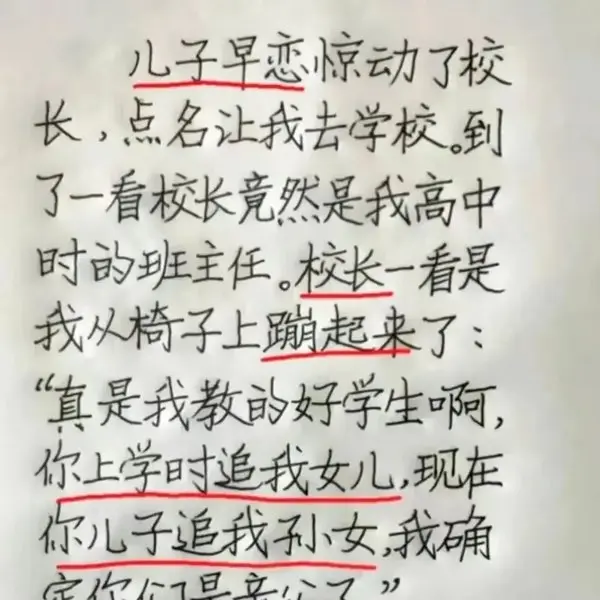 儿子早恋惊动了校
长,点名让我去学校。到
了一看校长竟然是我高中
时的班主任。校长一看是
我从椅子上蹦起来了:
“真是我教的好学生啊,
你上学时追我女儿,现在
你儿子追我孙女,我确
定你们是亲父子。”